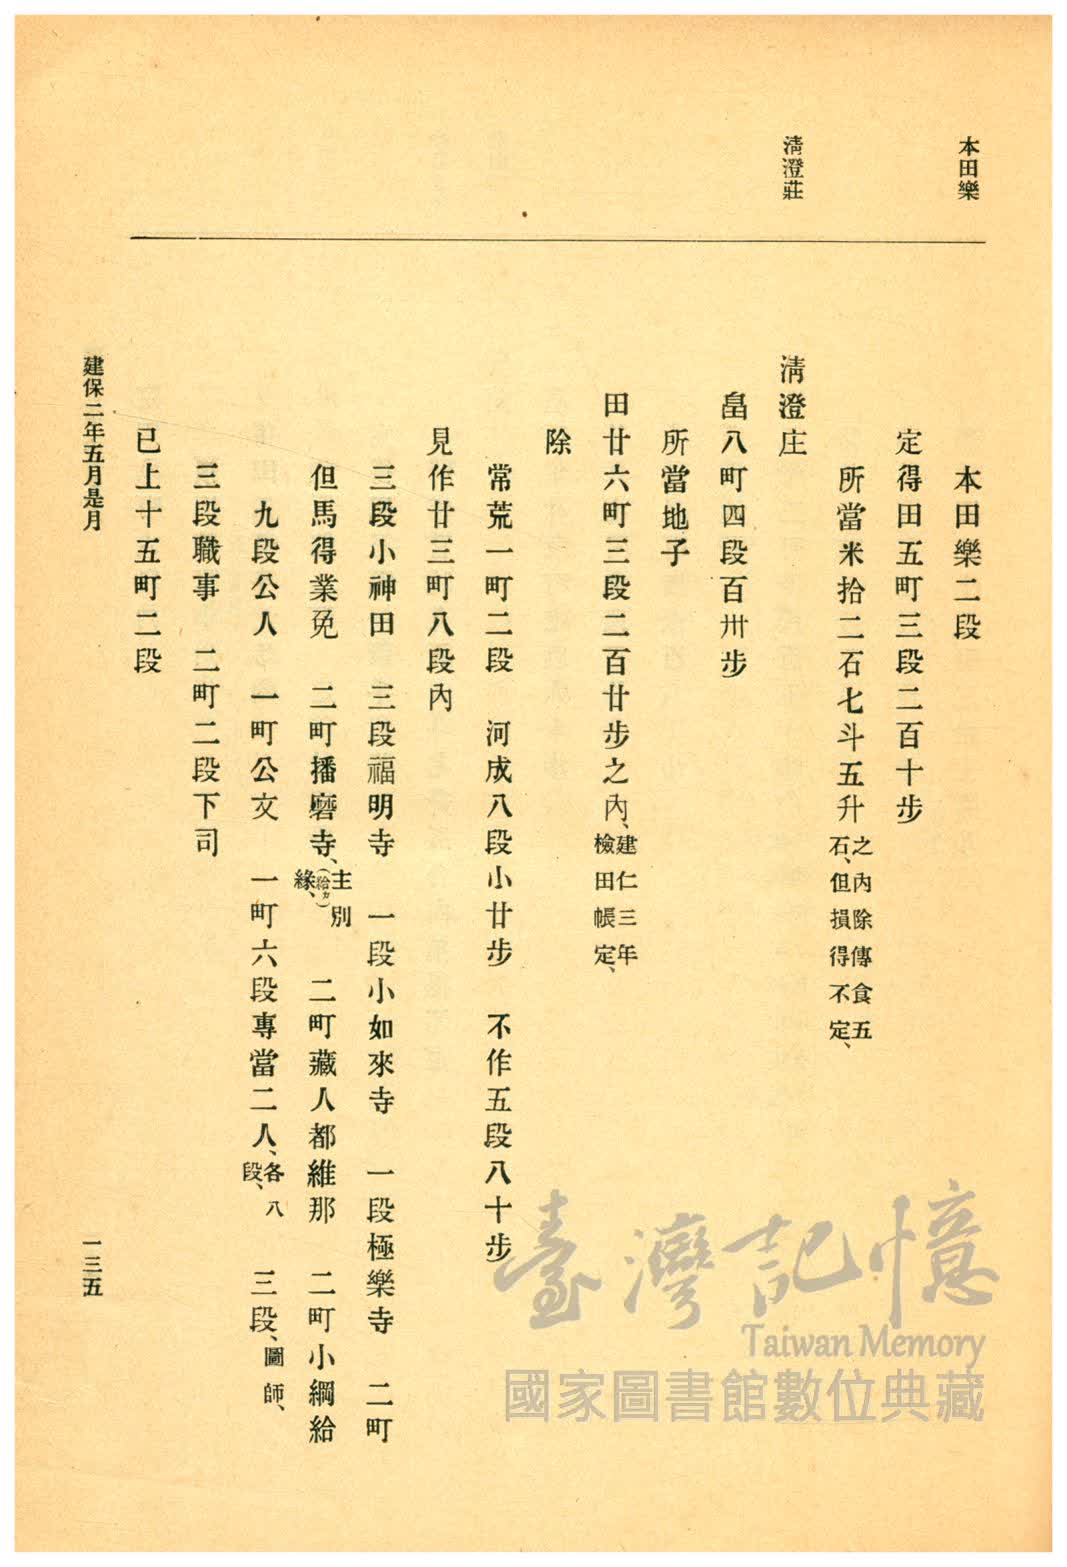 本田樂
淸澄莊
本田樂二段
定得田五町三段二百十步
所當米拾二石七斗五升之內除傳食五石、但損得不定、
淸澄庄
畠八町四段百卅步
所當地子
田廿六町三段二百廿步之內、建仁三年檢田帳定、
除
常荒一町二段　河成八段小廿步　不作五段八十步
見作廿三町八段內
三段小神田　三段福明寺　一段小如來寺　一段極樂寺　二町
但馬得業免　二町播磨寺、主別（給カ）緣、　二町藏人都維那　二町小綱給
九段公人　一町公文　一町六段專當二人、各八段、　三段、圖師、
三段職事　二町二段下司
已上十五町二段
建保二年五月是月
一三五
臺灣記憶
Taiwan Memory
國家圖書館數位典藏